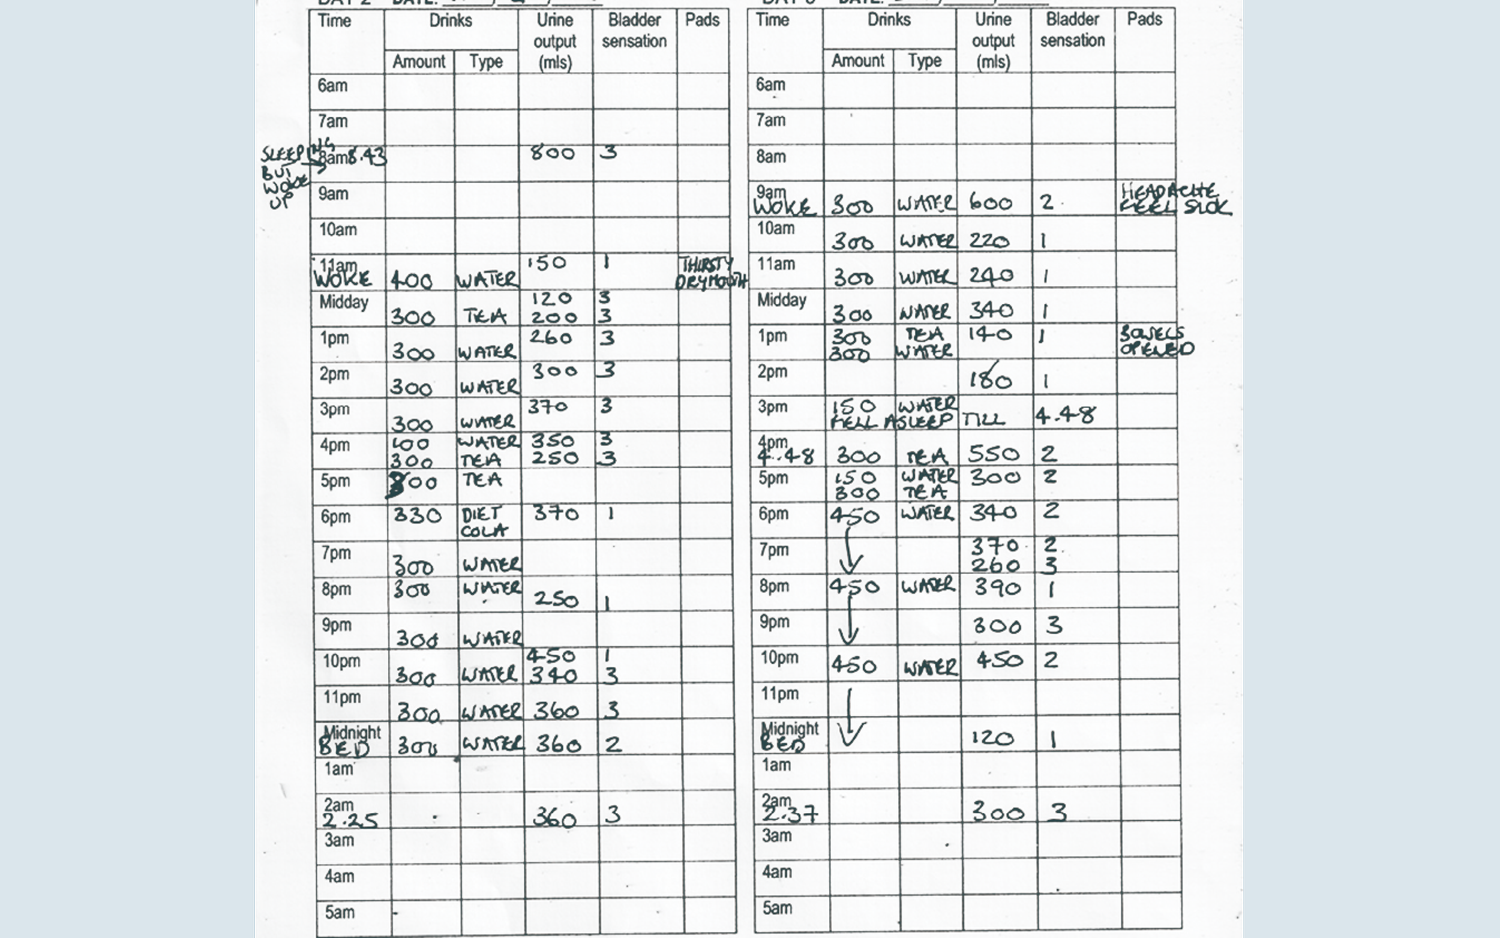 Time Drinks Urine output (mls) Bladder sensation Pads
Amount Type
6am
7am
SLEEPING BUT WOKE UP 8am 8.43 800 3
9am
10am
11am WOKE 400 WATER 150 1 THIRSTY DRY MOUTH
Midday 120 3
300 TEA 200 3
1pm 260 3
300 WATER
2pm 300 3
300 WATER
3pm 370 3
300 WATER
4pm 100 WATER 350 3
300 TEA 250 3
5pm 300 TEA
6pm 330 DIET COLA 370 1
7pm 300 WATER
8pm 300 WATER 250 1
9pm 300 WATER
10pm 450 1
300 WATER 340 3
11pm 300 WATER 360 3
Midnight BED 300 WATER 360 2
1am
2am 2.25 360 3
3am
4am
5am
Time Drinks Urine output (mls) Bladder sensation Pads
Amount Type
6am
7am
8am
9am WOKE 300 WATER 600 2 HEADACHE FEEL SICK
10am 300 WATER 220 1
11am 300 WATER 240 1
Midday 300 WATER 340 1
1pm 300 TEA 140 1 BOWELS OPENED
300 WATER
2pm 180 1
3pm 150 WATER
FELL ASLEEP TILL 4.48
4pm 4.48 300 TEA 550 2
5pm 150 WATER 300 2
300 TEA
6pm 450 WATER 340 2
7pm 370 2
260 3
8pm 450 WATER 390 1
9pm 300 3
10pm 450 WATER 450 2
11pm
Midnight BED 120 1
1am
2am 2.37 300 3
3am
4am
5am